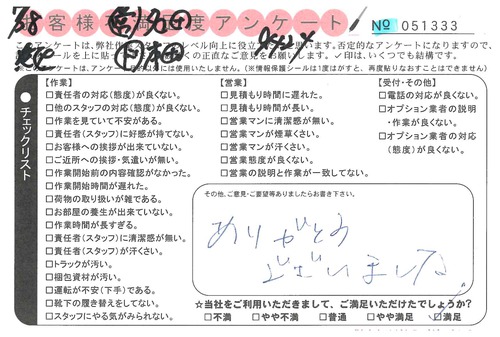 7/8
お客様不満足度アンケート
№ 051333
このアンケートは、弊社
レベル向上に役立
思います。否定的なアンケートになりますので、
シールを上に貼って
くの正直なご意見をお願いします。✓印は、いくつでも結構です。
※このアンケートは、アンケート
以外には使用いたしません。(※情報保護シールは1度はがすと、再度貼りなおすことはできません)
●チェックリスト
【作業】
□責任者の対応(態度)が良くない。
□他のスタッフの対応(態度)が良くない。
□作業を見ていて不安がある。
□責任者(スタッフ)に好感が持てない。
□お客様への挨拶が出来ていない。
□ご近所への挨拶・気遣いが無い。
□作業開始前の内容確認がなかった。
□作業開始時間が遅れた。
□荷物の取り扱いが雑である。
□お部屋の養生が出来ていない。
□作業時間が長すぎる。
□責任者(スタッフ)に清潔感が無い。
□責任者(スタッフ)が汗くさい。
□トラックが汚い。
□梱包資材が汚い。
□運転が不安(下手)である。
□靴下の履き替えをしてない。
□スタッフにやる気がみられない。
【営業】
□見積もり時間に遅れた。
□見積もり時間が長い。
□営業マンに清潔感が無い。
□営業マンが煙草くさい。
□営業マンが汗くさい。
□営業態度が良くない。
□営業の説明と作業が一致してない。
【受付・その他】
□電話の対応が良くない。
□オプション業者の説明
・作業が良くない。
□オプション業者の対応
(態度)が良くない。
その他、ご意見・ご要望等ありましたらお書き下さい。
ありがとう
ございました
☆当社をご利用いただきまして、ご満足いただけたでしょうか?
□不満 □やや不満 □普通 □やや満足 □満足